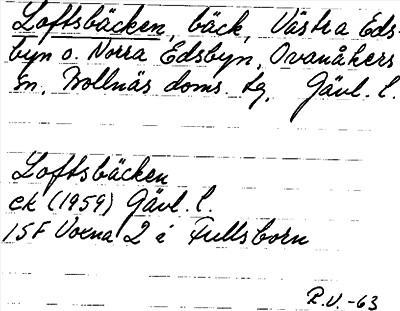 Loftsbäcken, bäck, Västra Eds-
byn o. Norra Edsbyn, Ovanåkers
sn, Bollnäs doms. tg, Gävl. l.
Loftsbäcken
ek (1959) Gävl. l.
15F Voxna 2 i Fullsborn
R.U. -63